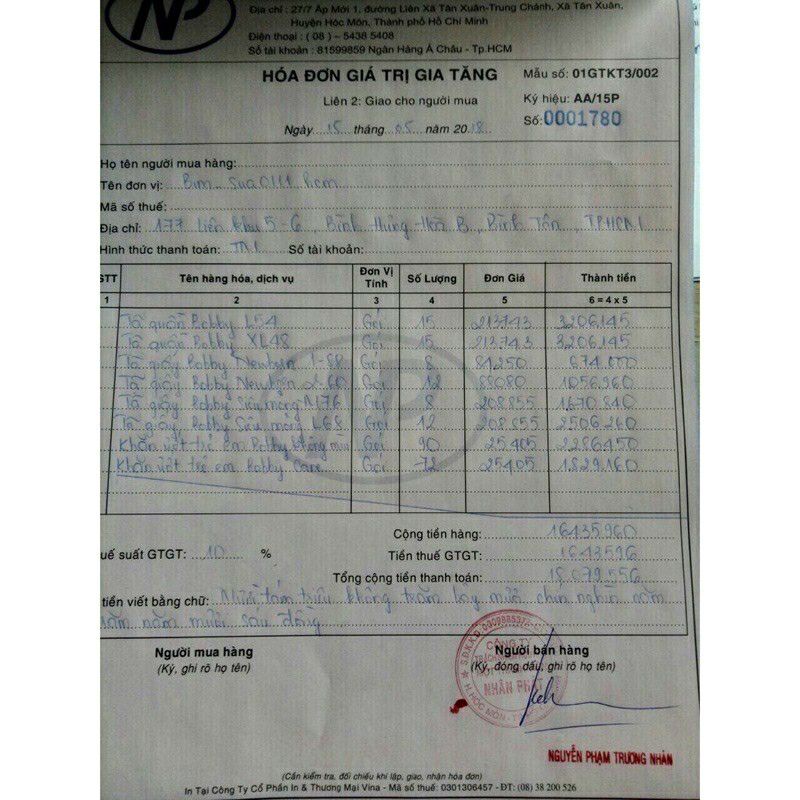 NP
Địa chỉ : 27/7 Ấp Mới 1, đường Liên Xã Tân Xuân-Trung Chánh, Xã Tân Xuân,
Huyện Hóc Môn, Thành phố Hồ Chí Minh
Điện thoại : ( 08 ) – 5438 5408
Số tài khoản : 81599859 Ngân Hàng Á Châu - Tp.HCM
HÓA ĐƠN GIÁ TRỊ GIA TĂNG
Mẫu số: 01GTKT3/002
Liên 2: Giao cho người mua
Ký hiệu: AA/15P
Số: 0001780
Ngày 15 tháng 05 năm 2018
Họ tên người mua hàng:
Tên đơn vị: Bim sua hcm
Mã số thuế:
Địa chỉ: 177 Liên khu 5-6, Bình Hưng Hòa B, Bình Tân, TPHCM
Hình thức thanh toán: TM Số tài khoản:
STT Tên hàng hóa, dịch vụ Đơn Vị Tính Số Lượng Đơn Giá Thành tiền
1 2 3 4 5 6 = 4 x 5
Tã quần Bobby L54 Gói 15 213743 3206145
Tã quần Bobby XL48 Gói 15 213743 3206145
Tã giấy Bobby Newborn 1-88 Gói 8 84250 674000
Tã giấy Bobby Newborn 2-60 Gói 12 88080 1056960
Tã giấy Bobby Siêu mỏng M76 Gói 8 208855 1670840
Tã giấy Bobby Siêu mỏng L68 Gói 12 208855 2506260
Khăn ướt trẻ em Bobby không mùi Gói 90 25405 2286450
Khăn ướt trẻ em Bobby Care Gói 72 25405 1829160
Cộng tiền hàng: 16435960
uế suất GTGT: 10 % Tiền thuế GTGT: 1643596
Tổng cộng tiền thanh toán: 18.079.556
tiền viết bằng chữ: Mười tám triệu không trăm bảy mươi chín nghìn năm
trăm năm mươi sáu đồng
Người mua hàng
Người bán hàng
(Ký, ghi rõ họ tên)
(Ký, đóng dấu, ghi rõ họ tên)
CÔNG TY
NHÂN PHÁT
NGUYỄN PHẠM TRƯỜNG NHÂN
(Cần kiểm tra, đối chiếu khi lập, giao, nhận hóa đơn)
In Tại Công Ty Cổ Phần In & Thương Mại Vina - Mã số thuế: 0301306457 - ĐT: (08) 38 200 526